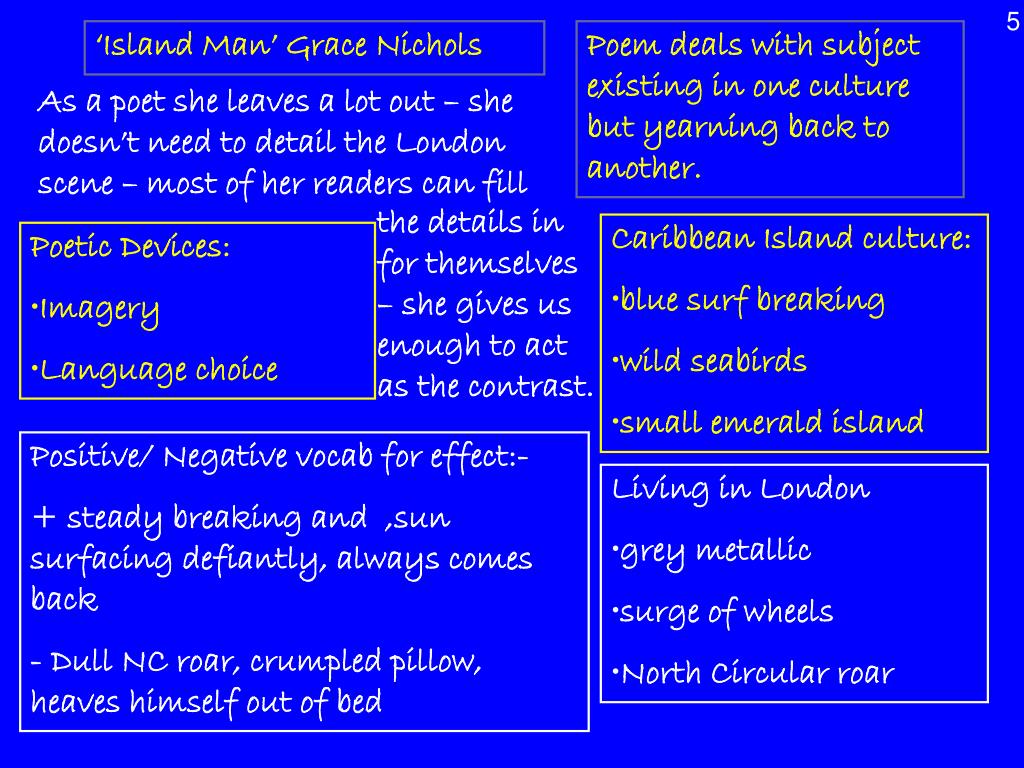 5
‘Island Man’ Grace Nichols
As a poet she leaves a lot out – she
doesn’t need to detail the London
scene – most of her readers can fill
the details in
for themselves
– she gives us
enough to act
as the contrast.
Poem deals with subject
existing in one culture
but yearning back to
another.
Poetic Devices:
•Imagery
•Language choice
Caribbean Island culture:
•blue surf breaking
•wild seabirds
•small emerald island
Positive/ Negative vocab for effect:-
+ steady breaking and ,sun
surfacing defiantly, always comes
back
- Dull NC roar, crumpled pillow,
heaves himself out of bed
Living in London
•grey metallic
•surge of wheels
•North Circular roar